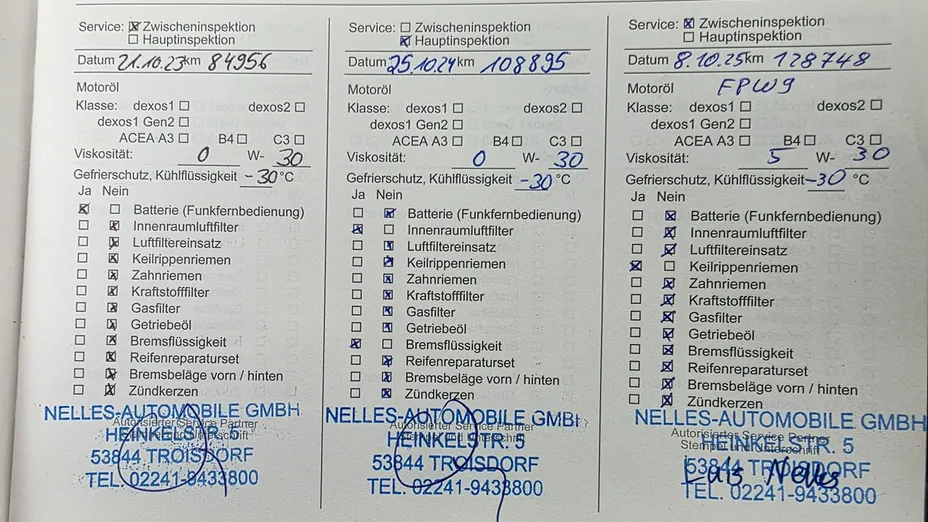 Service: Zwischeninspektion
Hauptinspektion
Datum 21.10.23 km 84956
Motoröl
Klasse: dexos1 dexos2
dexos1 Gen2
ACEA A3 B4 C3
Viskosität: 0 W- 30
Gefrierschutz, Kühlflüssigkeit -30 °C
Ja Nein
Batterie (Funkfernbedienung)
Innenraumluftfilter
Luftfiltereinsatz
Keilrippenriemen
Zahnriemen
Kraftstofffilter
Gasfilter
Getriebeöl
Bremsflüssigkeit
Reifenreparaturset
Bremsbeläge vorn / hinten
Zündkerzen
NELLES-AUTOMOBILE GMBH
Autorisierter Service Partner
HEINKELSTR. 5
53844 TROISDORF
TEL. 02241-9433800
Service: Zwischeninspektion
Hauptinspektion
Datum 25.10.24 km 108895
Motoröl
Klasse: dexos1 dexos2
dexos1 Gen2
ACEA A3 B4 C3
Viskosität: 0 W- 30
Gefrierschutz, Kühlflüssigkeit -30 °C
Ja Nein
Batterie (Funkfernbedienung)
Innenraumluftfilter
Luftfiltereinsatz
Keilrippenriemen
Zahnriemen
Kraftstofffilter
Gasfilter
Getriebeöl
Bremsflüssigkeit
Reifenreparaturset
Bremsbeläge vorn / hinten
Zündkerzen
NELLES-AUTOMOBILE GMBH
Autorisierter Service Partner
HEINKELSTR. 5
53844 TROISDORF
TEL. 02241-9433800
Service: Zwischeninspektion
Hauptinspektion
Datum 8.10.25 km 128748
Motoröl FPW9
Klasse: dexos1 dexos2
dexos1 Gen2
ACEA A3 B4 C3
Viskosität: 5 W- 30
Gefrierschutz, Kühlflüssigkeit -30 °C
Ja Nein
Batterie (Funkfernbedienung)
Innenraumluftfilter
Luftfiltereinsatz
Keilrippenriemen
Zahnriemen
Kraftstofffilter
Gasfilter
Getriebeöl
Bremsflüssigkeit
Reifenreparaturset
Bremsbeläge vorn / hinten
Zündkerzen
NELLES-AUTOMOBILE GMBH
Autorisierter Service Partner
HEINKELSTR. 5
Stempel und Unterschrift
53844 TROISDORF
TEL. 02241-9433800